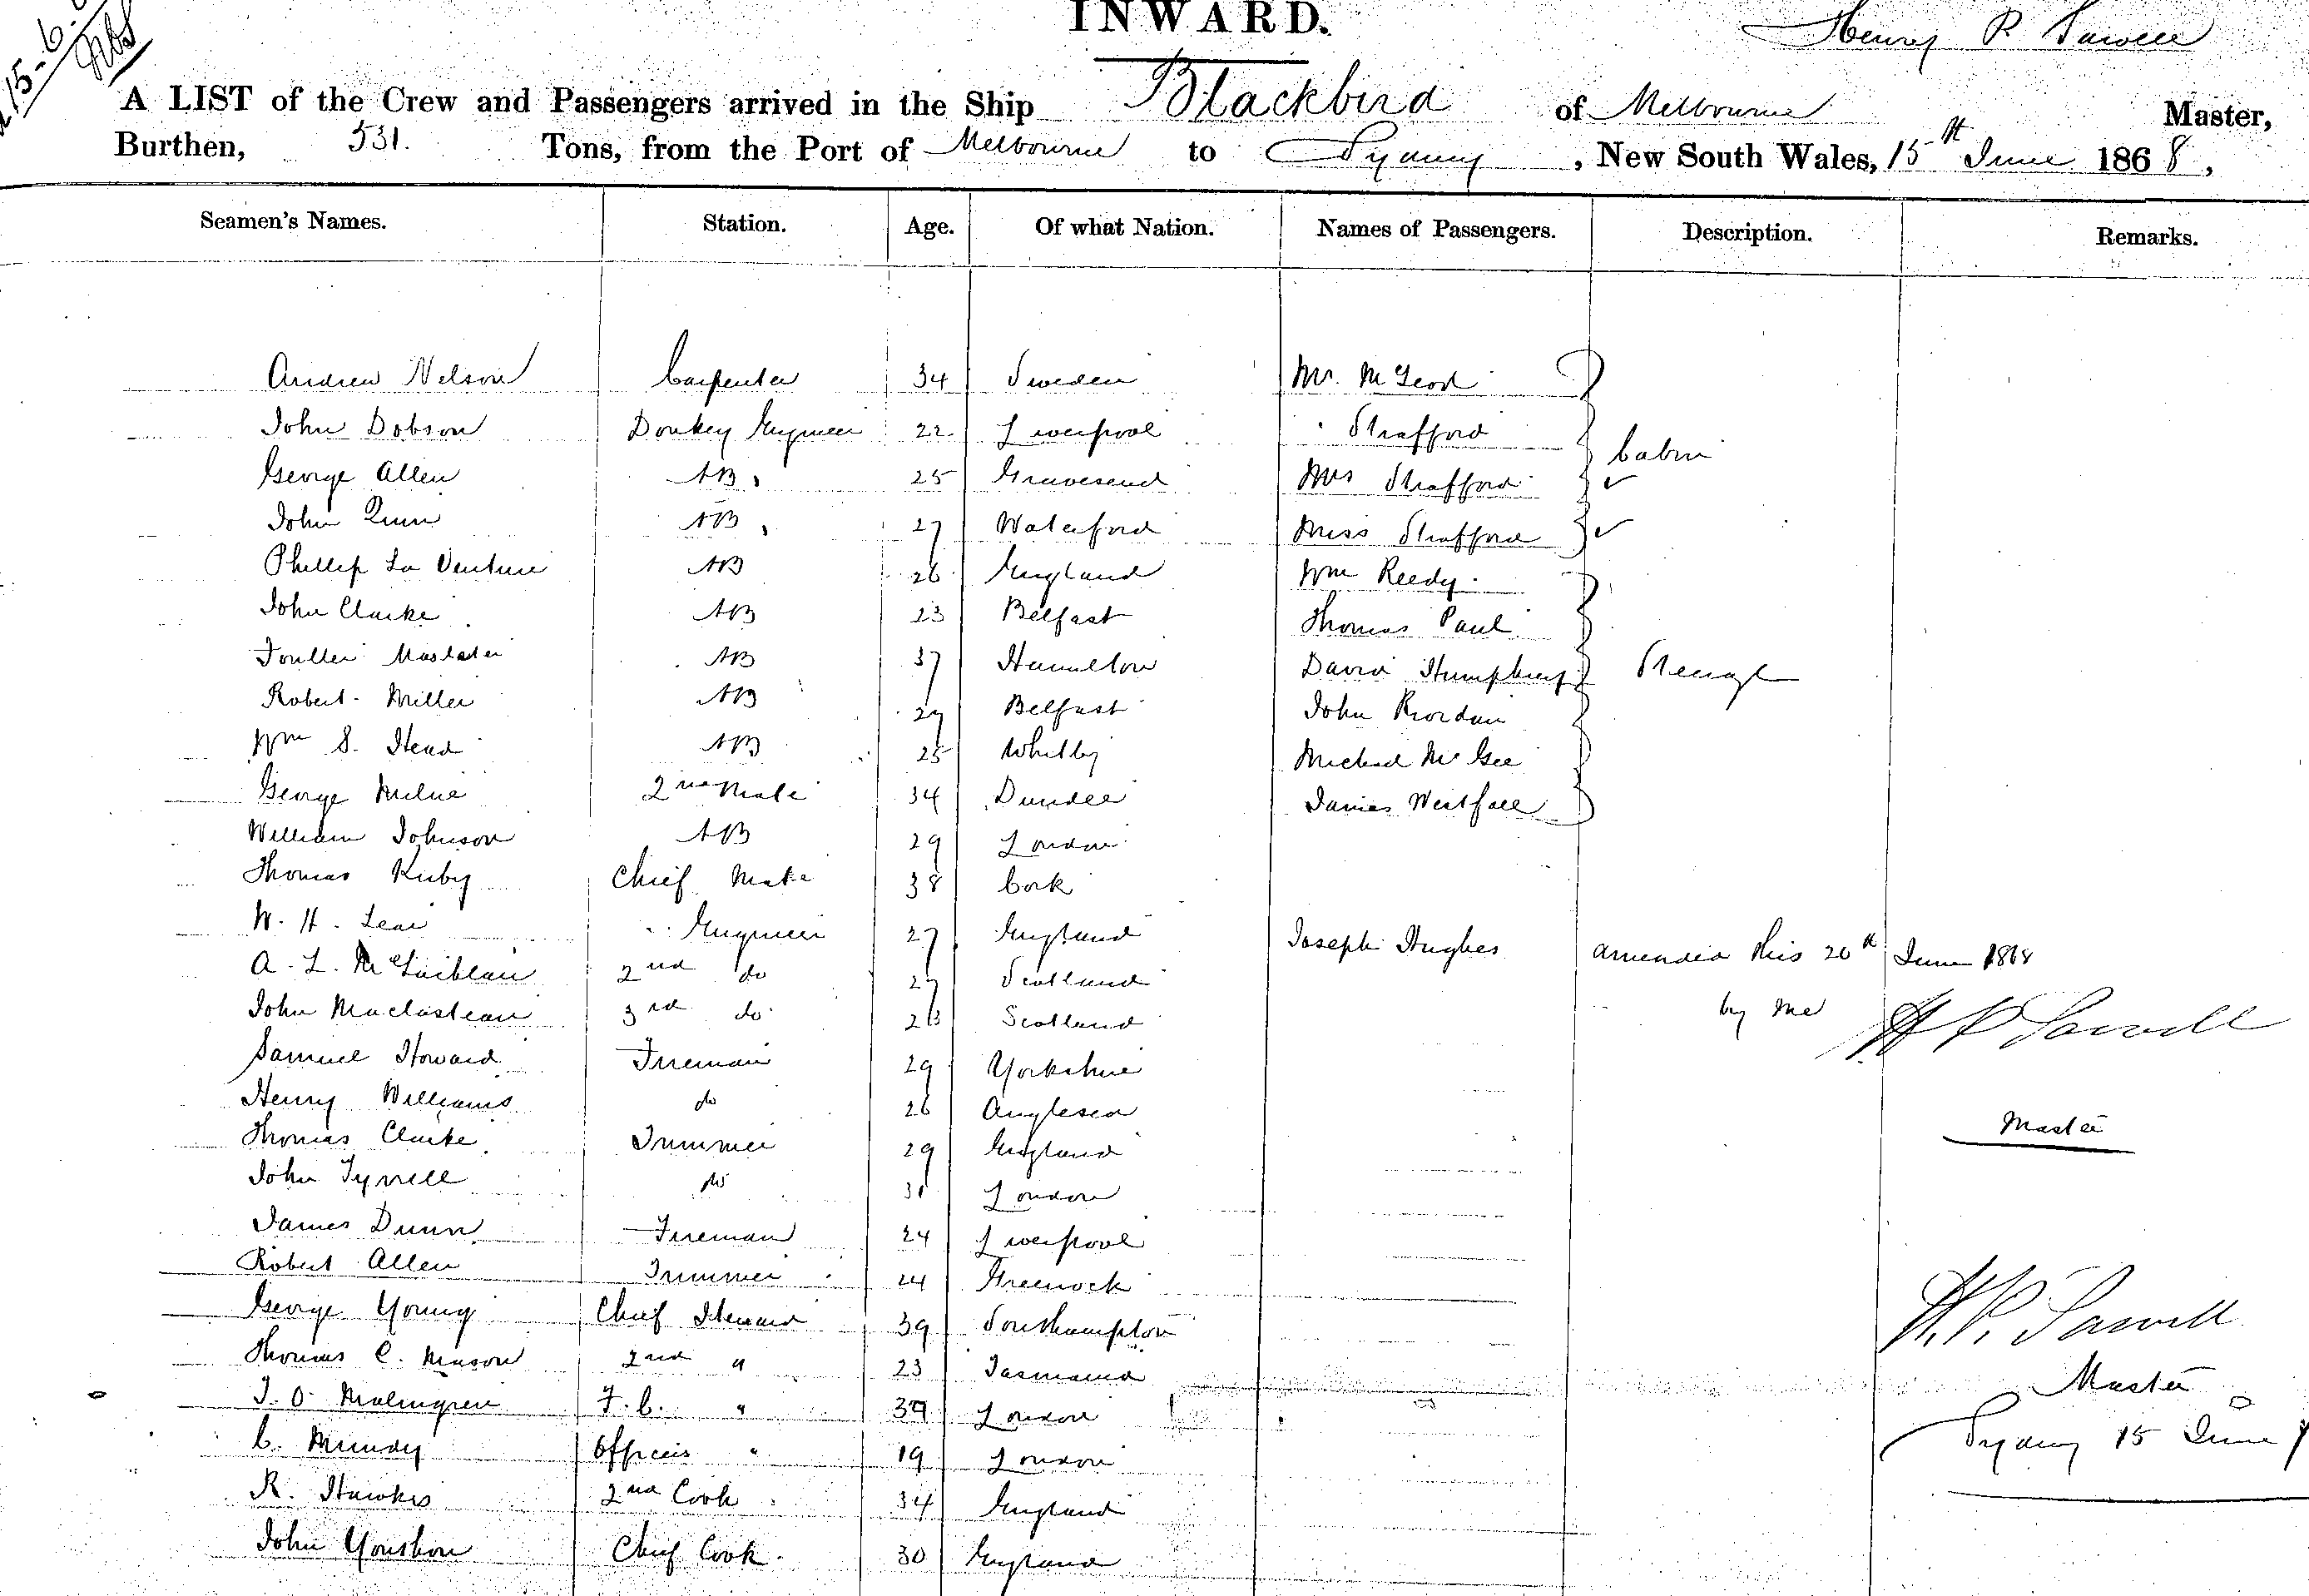 INWARD.
Henry P Sawell
15-6-
A LIST of the Crew and Passengers arrived in the Ship Blackbird of Melbourne Master,
Burthen, 531. Tons, from the Port of Melbourne to Sydney, New South Wales, 15th June 1868,
Seamen's Names. Station. Age. Of what Nation. Names of Passengers. Description. Remarks.
Andrew Nelson Carpenter 34 Sweden Mr. McLeod
John Dobson Donkey Engineer 22 Liverpool " Strafford Cabin
George Allen AB 25 Gravesend Mrs Strafford
John Quin AB 27 Waterford Miss Strafford
Phillip La Venture AB 26 England Wm Reedy
John Clarke AB 23 Belfast Thomas Paul
AB 37 Hamilton David Humphrey Steerage
Robert Miller AB 29 Belfast John Riordan
Wm S. Head AB 25 Whitby Michael McGee
George Milne 2nd Mate 34 Dundee James Westfall
William Johnson AB 29 London
Thomas Kirby Chief Mate 38 Cork
W. H. Lear " Engineer 27 England Joseph Hughes amended this 20th June 1868
A. L. McLachlan 2nd do 27 Scotland
John 3rd do 26 Scotland by me H P Sawell
Samuel Howard Fireman 29 Yorkshire
Henry Williams do 26 Anglesea Master
Thomas Clarke Trimmer 29 England
John Tyrrell do 31 London
James Dunn Fireman 24 Liverpool
Robert Allen Trimmer 24 Greenock
George Young Chief Steward 39 Southampton H.P. Sawell
Thomas C. Mason 2nd " 23 Tasmania Master
J. O. Malmgren F. C. " London
C. Mundy Officers " 19 London Sydney 15 June
R. Hawkes 2nd Cook 34 England
John Chief Cook 30 England